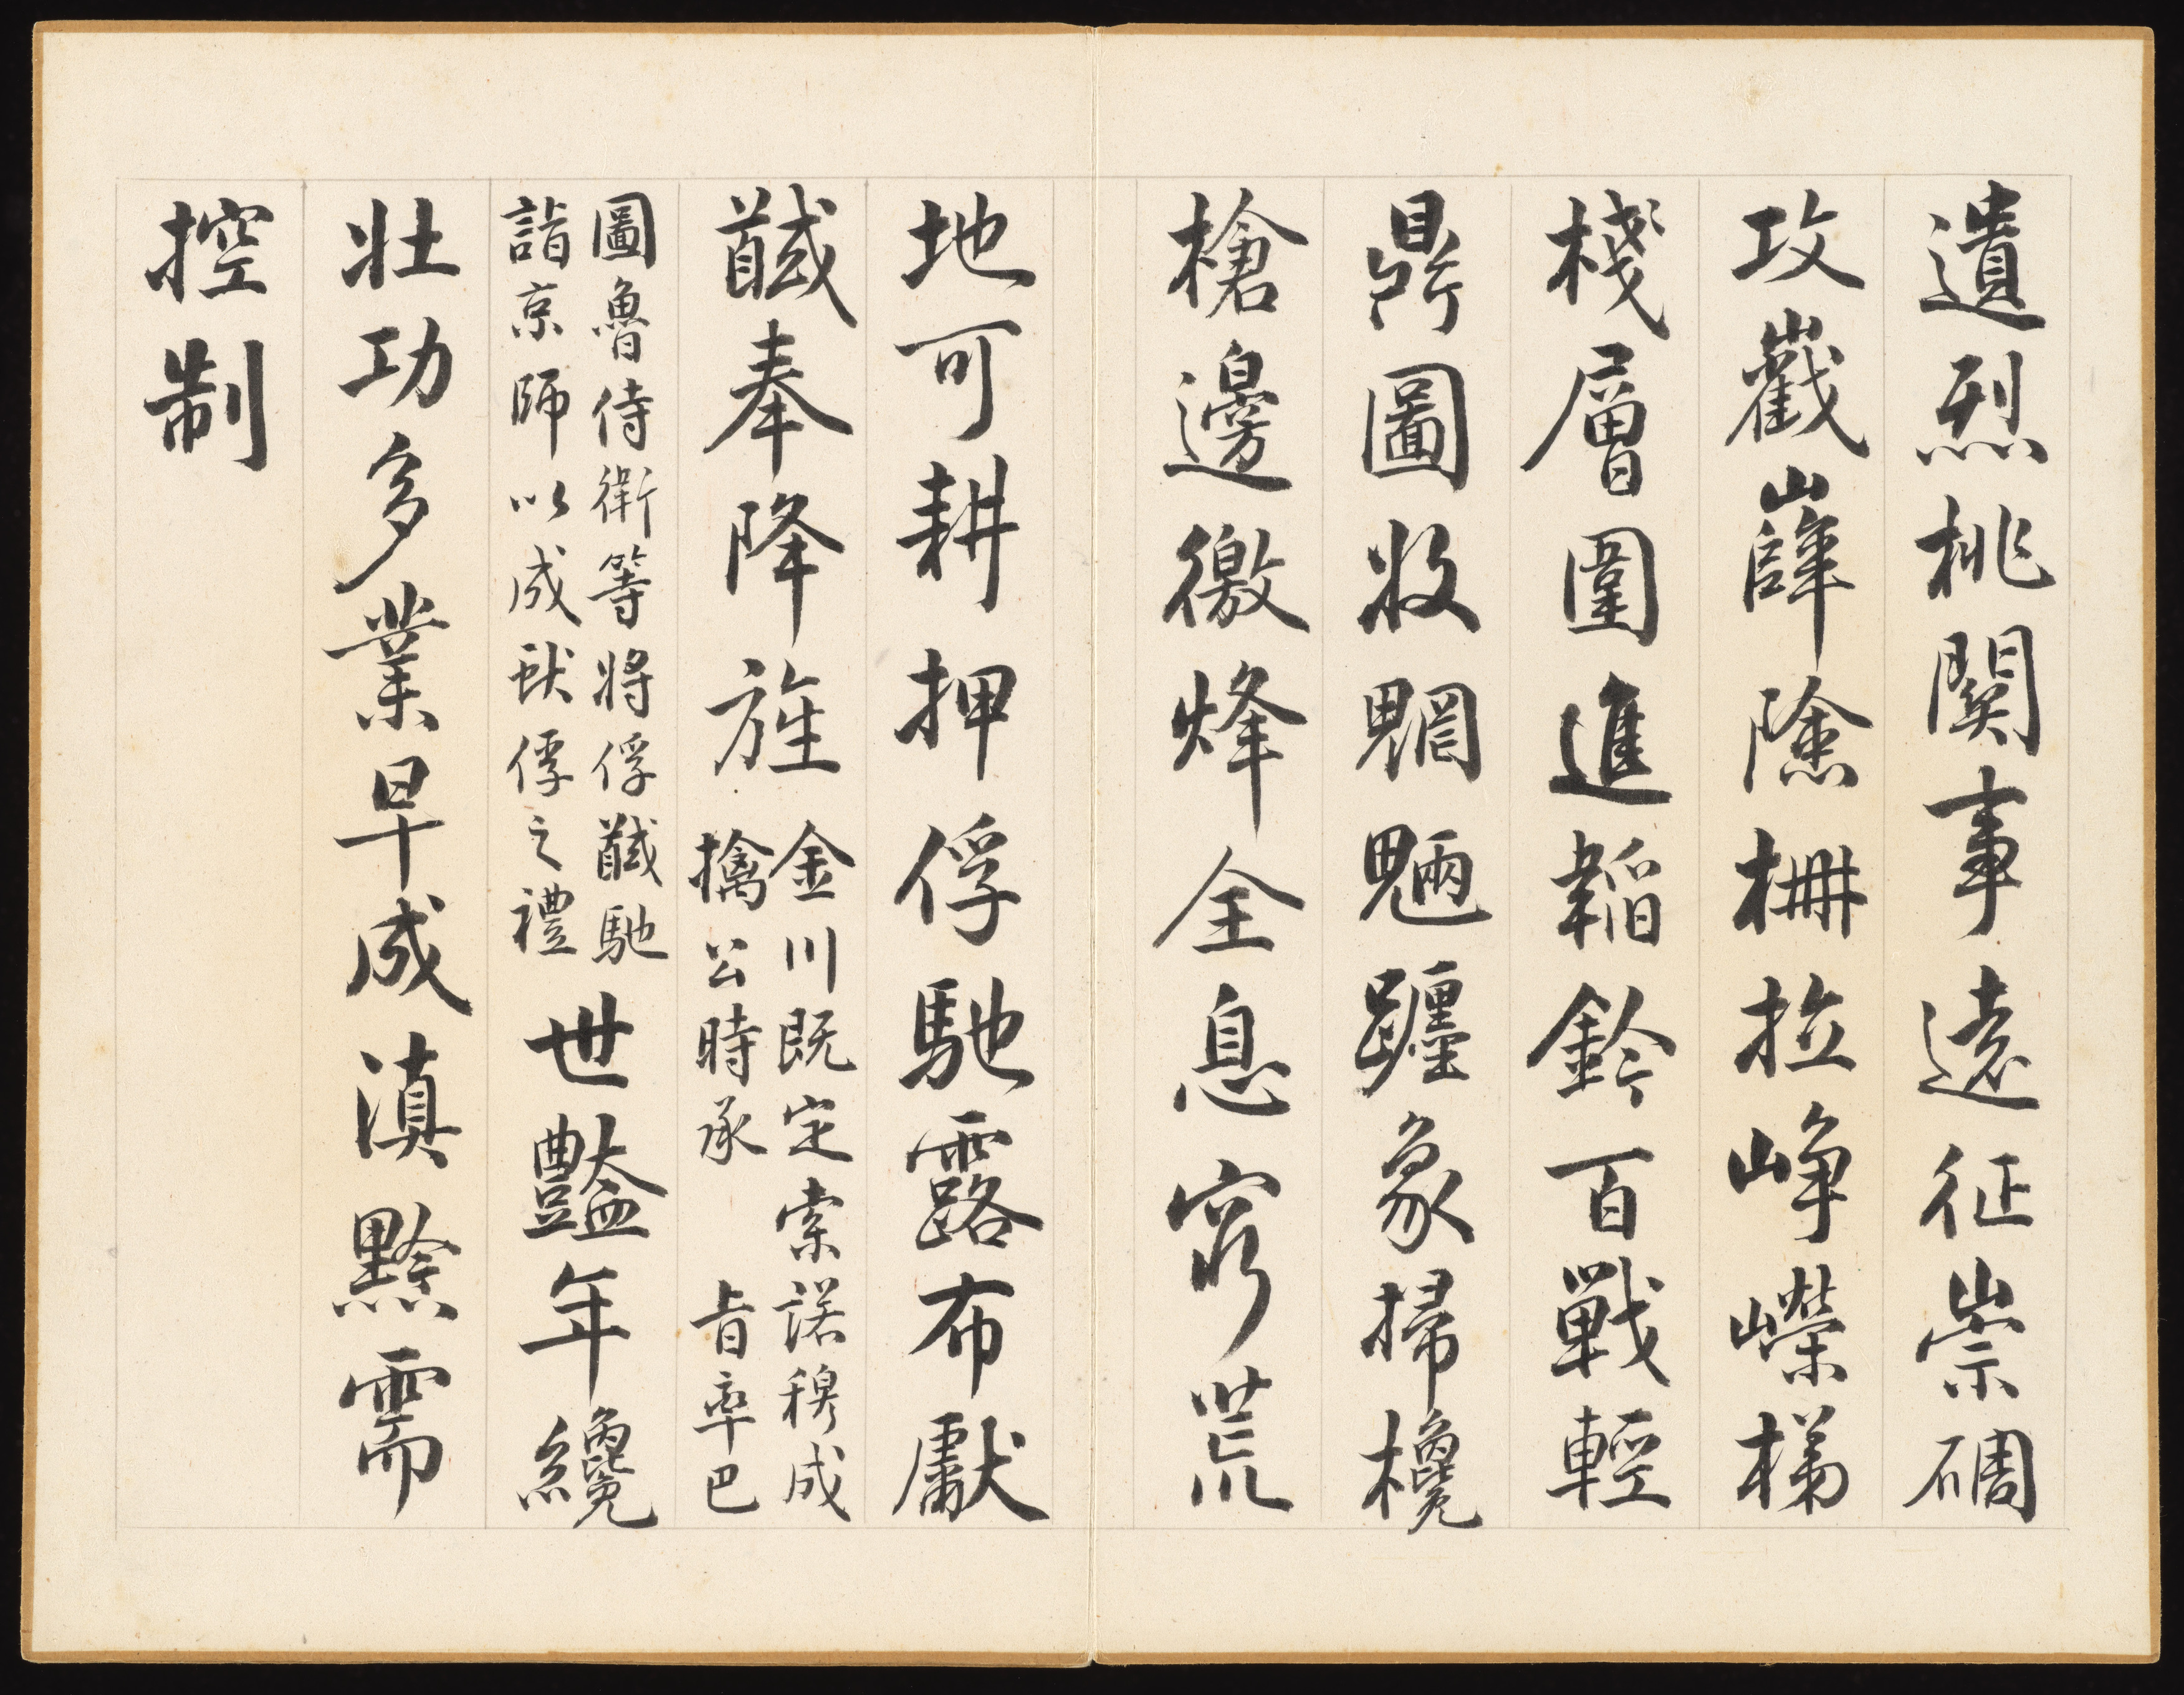 遺烈桃關事遠征崇碉
攻嶻嶭險柵拉崢嶸梯
棧層圍進韜鈐百戰輕
鼎圖收魍魎躔象掃欃
槍邊徼烽全息窮荒
地可耕押俘馳露布獻
馘奉降旌
金川既定索諾穆成
擒公時承　旨率巴
圖魯侍衛等將俘馘馳
詣京師以成獻俘之禮
世豔年纔
壯功多業早成滇黔需
控制